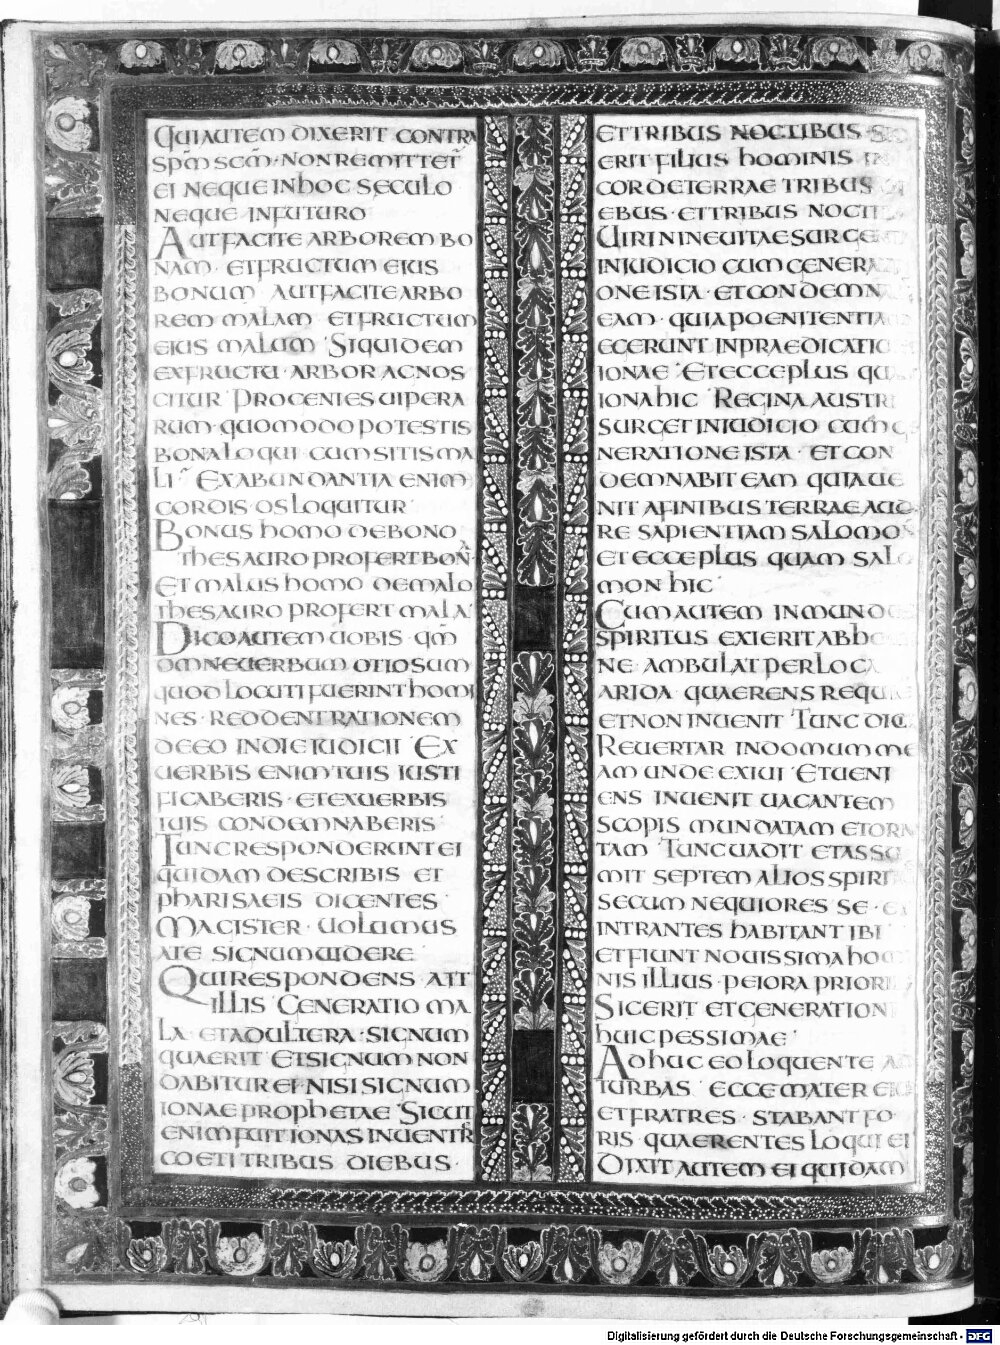 QUIAUTEM DIXERIT CONTRA
SPM̄ SCM̄ · NONREMITTET̄
EI NEQUE INHOC SECULO
NEQUE INFUTURO
AUTFACITE ARBOREM BO
NAM · ETFRUCTUM EIUS
BONUM AUTFACITEARBO
REM MALAM · ETFRUCTUM
EIUS MALUM · SIQUIDEM
EXFRUCTU · ARBOR AGNOS
CITUR · PROGENIESUIPERA
RUM · QUOMODO POTESTIS
BONALOQUI · CUMSITISMA
LI · EXABUNDANTIA ENIM
CORDIS · OSLOQUITUR ·
BONUS HOMO DEBONO
THESAURO PROFERT BON̄ ·
ET MALUS HOMO DEMALO
THESAURO PROFERT MALA ·
DICOAUTEM UOBIS · QM̄
OMNEUERBUM OTIOSUM
QUOD LOCUTI FUERINTHOMI
NES · REDDENTRATIONEM
DEEO INDIEIUDICII · EX
UERBIS ENIMTUIS IUSTI
FICABERIS · ETEXUERBIS
TUIS CONDEMNABERIS ·
TUNCRESPONDERUNTEI
QUIDAM DESCRIBIS ET
PHARISAEIS DICENTES ·
MAGISTER · UOLUMUS
ATE SIGNUMUIDERE ·
QUIRESPONDENS AIT
ILLIS · GENERATIO MA
LA · ETADULTERA · SIGNUM
QUAERIT · ETSIGNUM NON
DABITUREI · NISI SIGNUM
IONAE PROPHETAE · SICUT
ENIMFUIT IONAS INUENTR̄
COETI TRIBUS DIEBUS ·
ETTRIBUS NOCTIBUS ·
ERIT FILIUS HOMINIS
CORDETERRAE TRIBUS
EBUS · ETTRIBUS
UIRININEUITAE
INIUDICIO CUM
ONEISTA · ETCONDEMN
EAM · QUIAPOENITENTIA
ECERUNT INPRAEDICATIO
IONAE · ETECCEPLUS
IONAHIC · REGINA AUSTRI
SURGETINIUDICIO CUM
NERATIONEISTA · ETCON
DEMNABIT EAM QUIAUE
NIT AFINIBUS TERRAE AUD
RE SAPIENTIAM SALOMO
ETECCEPLUS QUAM SALO
MON HIC ·
CUMAUTEM INMUND
SPIRITUS EXIERIT ABHO
NE · AMBULAT PERLOCA
ARIDA · QUAERENS
ETNON INUENIT · TUNC DIC
REUERTAR INDOMUM ME
AM UNDE EXIUI · ETUENI
ENS INUENIT UACANTEM
SCOPIS MUNDATAM ETORN
TAM · TUNCUADIT ETASSU
MIT SEPTEM ALIOS
SECUM NEQUIORES SE ·
INTRANTES HABITANT IBI ·
ETFIUNT NOUISSIMA HO
NIS ILLIUS · PEIORA
SICERIT ETGENERATION
HUICPESSIMAE ·
ADHUC EO LOQUENTE
TURBAS · ECCEMATER
ETFRATRES · STABANT FO
RIS · QUAERENTES LOQUI EI
DIXIT AUTEM EI QUIDAM
Digitalisierung gefördert durch die Deutsche Forschungsgemeinschaft - DFG